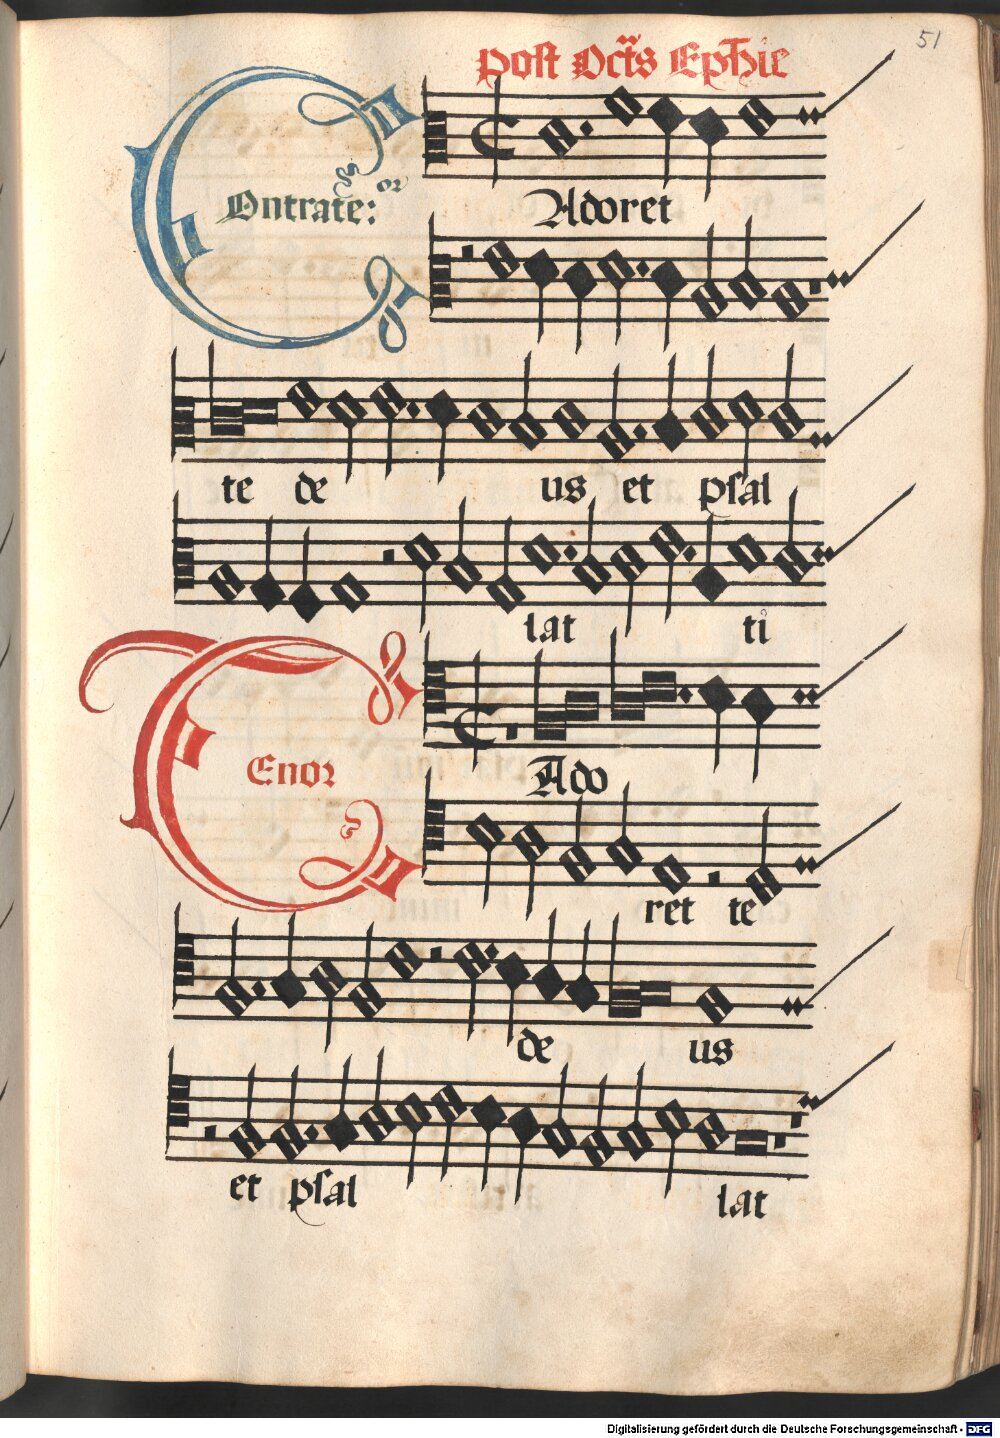 51
Post Octs Ephie
Contrateor:
Adoret
te de us et psal
lat ti
Tenor
Ado
ret te
de us
et psal lat
Digitalisierung gefördert durch die Deutsche Forschungsgemeinschaft - DFG